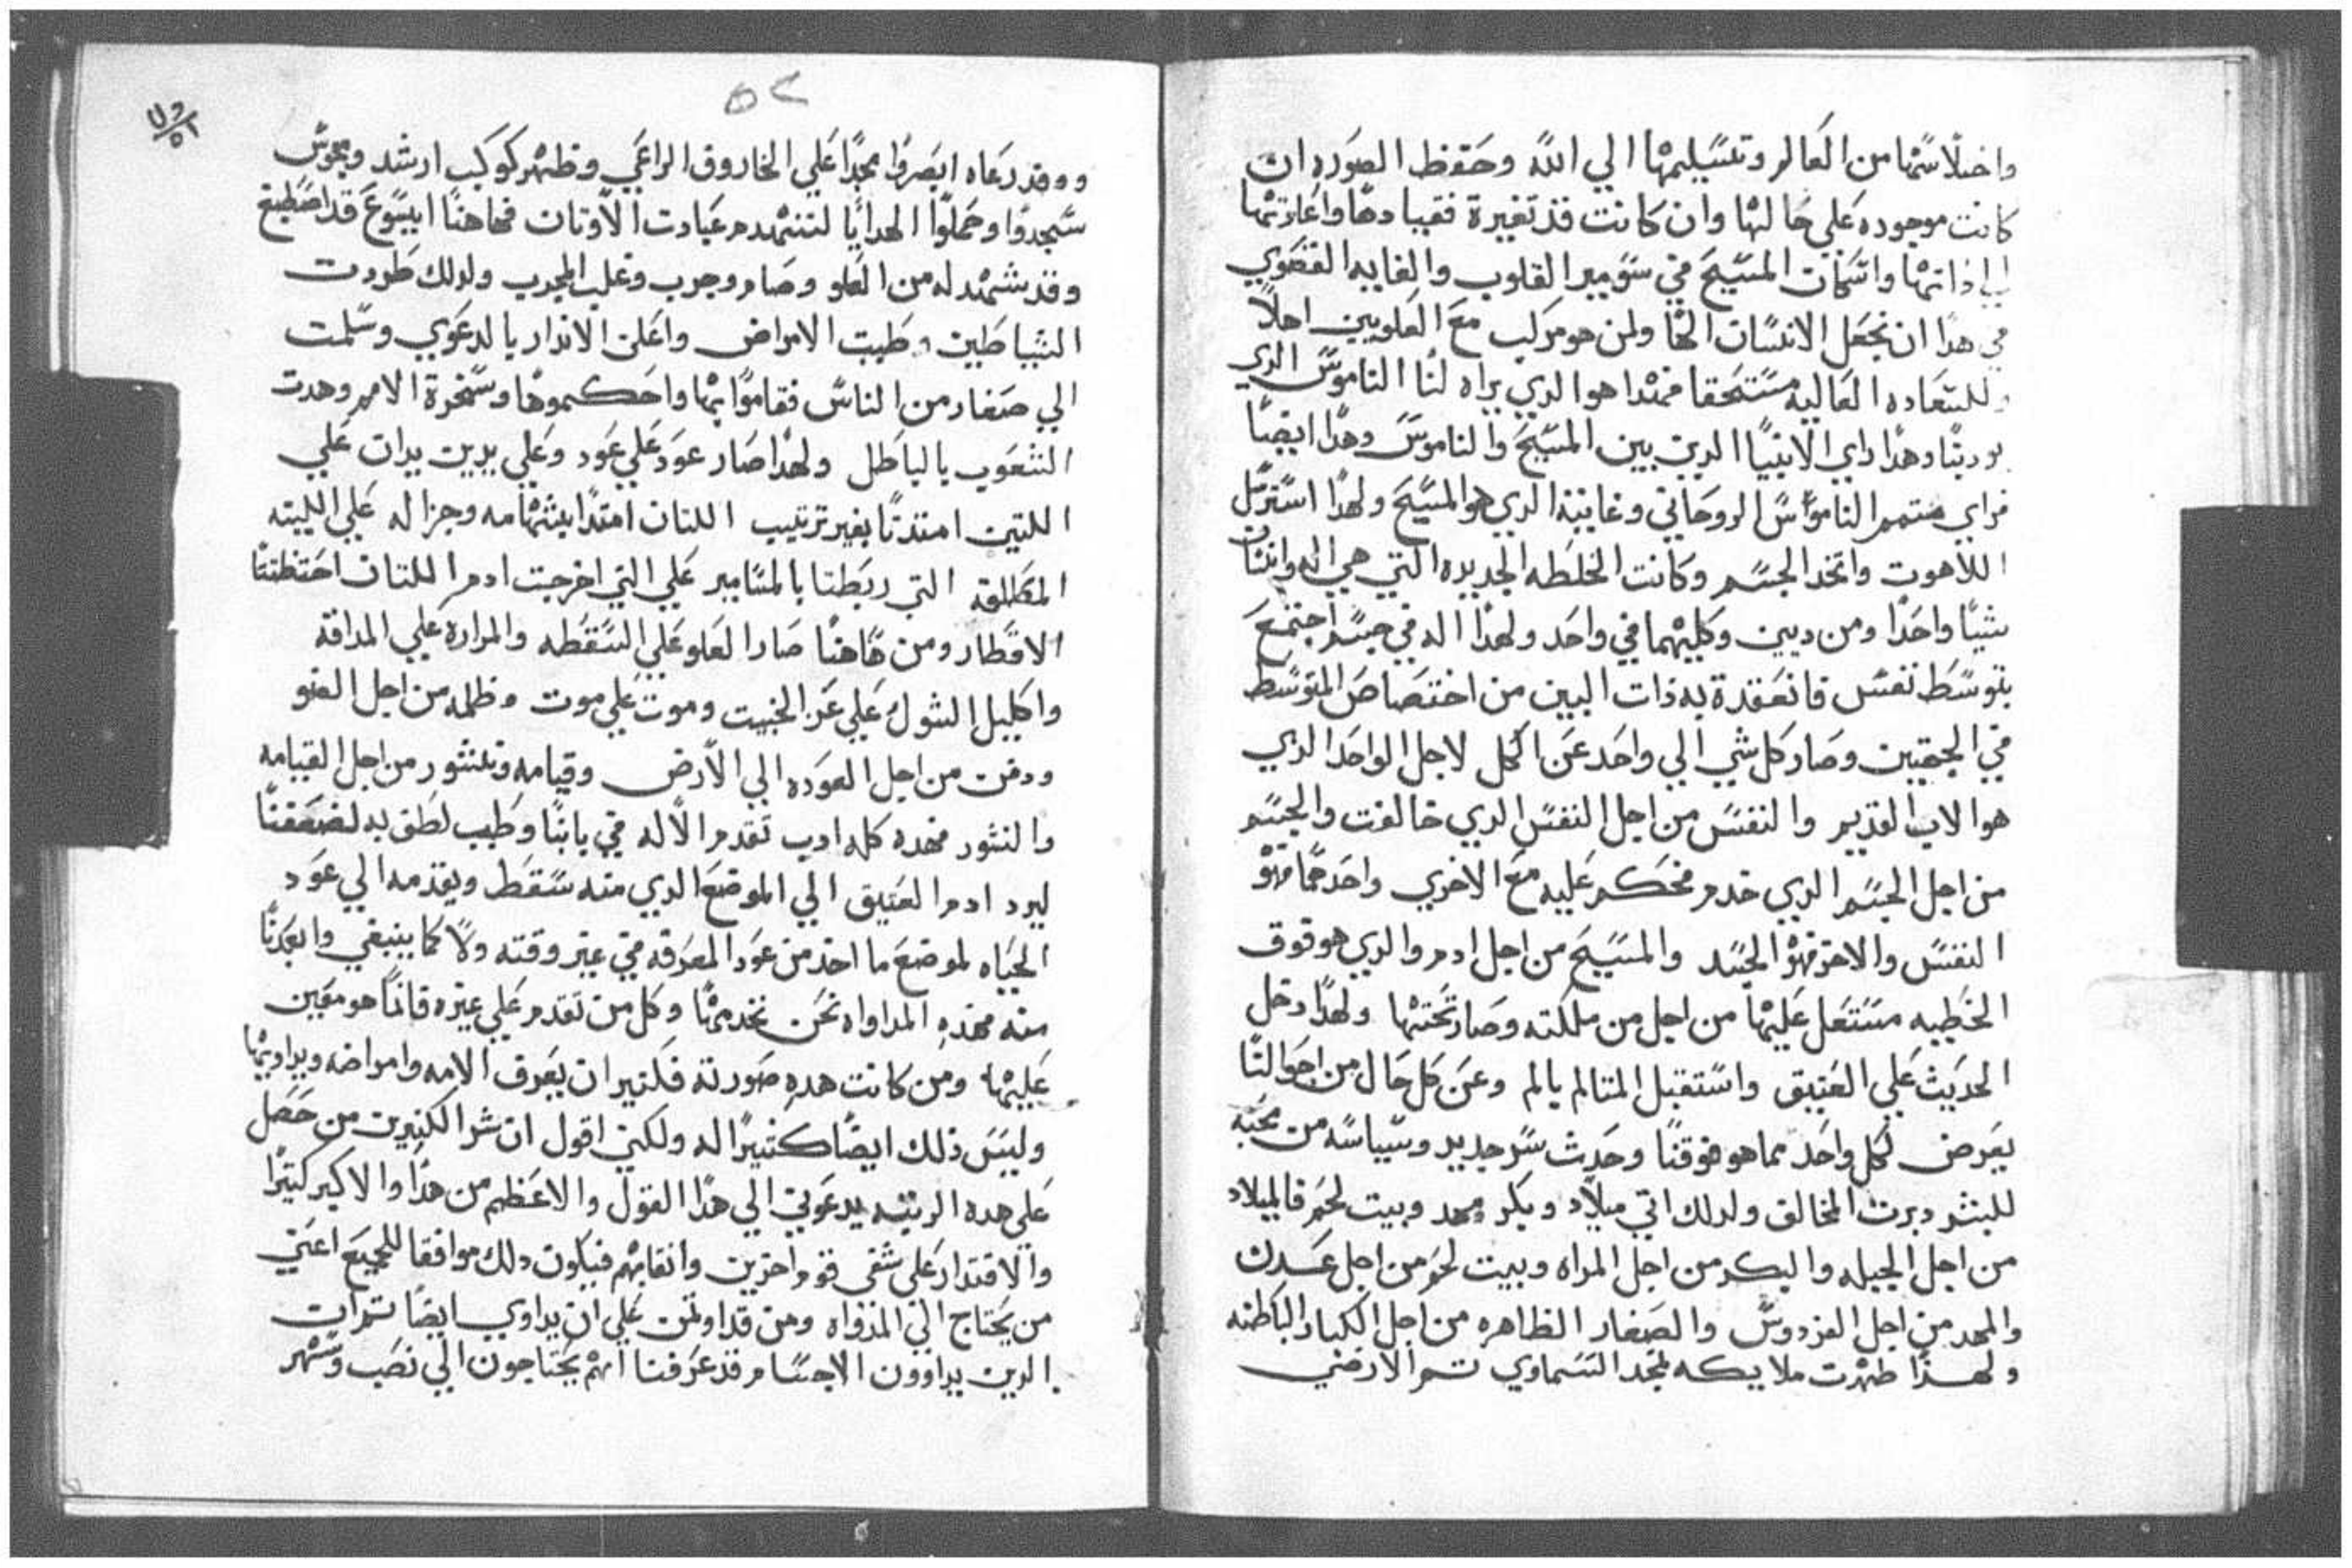 واختلاسها من العالم وتسليمها الي الله وحفظ الصوره ان
كانت موجوده علي حالتها وان كانت قد تغيرة فقيادها واعادتها
الي ذاتها واسكان المسيح في القلوب والغايه القصوي
في هدا ان نجعل الانسان الها ولمن هو مركب مع العلويين اهلاً
وللسعاده العاليه مستحقا فهدا هو الدي يراه لنا الناموس الدي
يودبنا وهدا راي الانبيا الدين بين المسيح والناموس وهدا ايضاً
فراي متمم الناموس الروحاني وغايته الدي هو المسيح ولهدا
اللاهوت واتخد الجسم وكانت الخلطه الجديده التي هي اله وانسان
شياً واحداً ومن ديين وكليهما في واحد ولهدا اله في جسم اجتمع
بتوسط نفس فانعقدة به ذات البين من اختصاص المتوسط
في الجهتين وصار كل شي الي واحد عن الكل لاجل الواحد الدي
هو الاب القديم والنفس من اجل النفس الدي خالفت والجسم
من اجل الجسم الدي خدم فحكم عليه مع الاخري واحدهما فهو
النفس والاخر فهو الجسد والمسيح من اجل ادم والدي هو فوق
الخطيه مستعل عليها من اجل من ملكته وصار تحتها ولهدا دخل
الحديث علي العتيق واستقبل المتالم بالم وعن كل حال من احوالنا
يعرض لكل واحد مما هو فوقنا وحدث سر جديد وسياسه من محبه
للبشر دبرت المخالف ولدلك اتي ميلاد وبكر ومهد وبيت لحم فالميلاد
من اجل الجبله والبكر من اجل المراه وبيت لحم من اجل عدن
والمهد من اجل الفردوس والصغار الظاهره من اجل الكبار الباطنه
ولهدا ظهرت ملايكه لمجد السماوي تم الارضي
٥٢
وقد رعاه ابصروا مجداً علي الخاروف الراعي وظهر كوكب ارشد ومجوس
سجدوا وحملوا الهدايا لتنهدم عبادت الاوتان فهاهنا ايسوع قد اصطبغ
وقد شهد له من العلو وصام وجرب وغلب المجرب ولدلك طردت
الشياطين وطيبت الامراض واعلن الاندار بالدعوي وسلمت
الي صغار من الناس فقاموا بها واحكموها وسخرة الامم وهدت
الشعوب بالباطل ولهدا صار عود علي عود وعلي يدين يدان علي
اللتين امتدتا بغير ترتيب اللتان امتدا بشهامه وجزاله علي
المطلقه التي ربطتا بالمسامير علي التي اخرجت ادم اللتان احتظنتا
الاقطار ومن هاهنا صار العلو علي السقطه والمراره علي المداقه
واكليل الشوك علي عز الخبيت وموت علي موت وظلمه من اجل الضو
ودفن من اجل العوده الي الارض وقيامه ونشور من اجل القيامه
والنشور فهده كله ادب تقدم الاله في بابنا وطيب لطف به لضعفنا
ليرد ادم العتيق الي الموضع الدي منه سقط ويقدمه الي عود
الحياه لموضع ما اخد من عود المعرفه في غير وقته ولا كما ينبغي وابعدنا
منه فهده المداواه نحن نخدمها وكل من تقدم علي غيره فانما هو معين
عليها ومن كانت هده صورته فكتير ان يعرف الامه وامراضه ويداويها
وليس ذلك ايضاً كتيراً له ولكني اقول ان شر الكتيرين من حصل
علي هده الرتبه يدعوني الي هدا القول والاعظم من هدا والاكبر كتيراً
والاقتدار علي شفي قوم اخرين وانقايهم فيكون دلك موافقا للجميع اعني
من يحتاج الي المداواه ومن قد اوتمن علي ان يداوي ايضاً تم ان
الدين يداوون الاجسام قد عرفنا انهم يحتاجون الي نصب وسهر